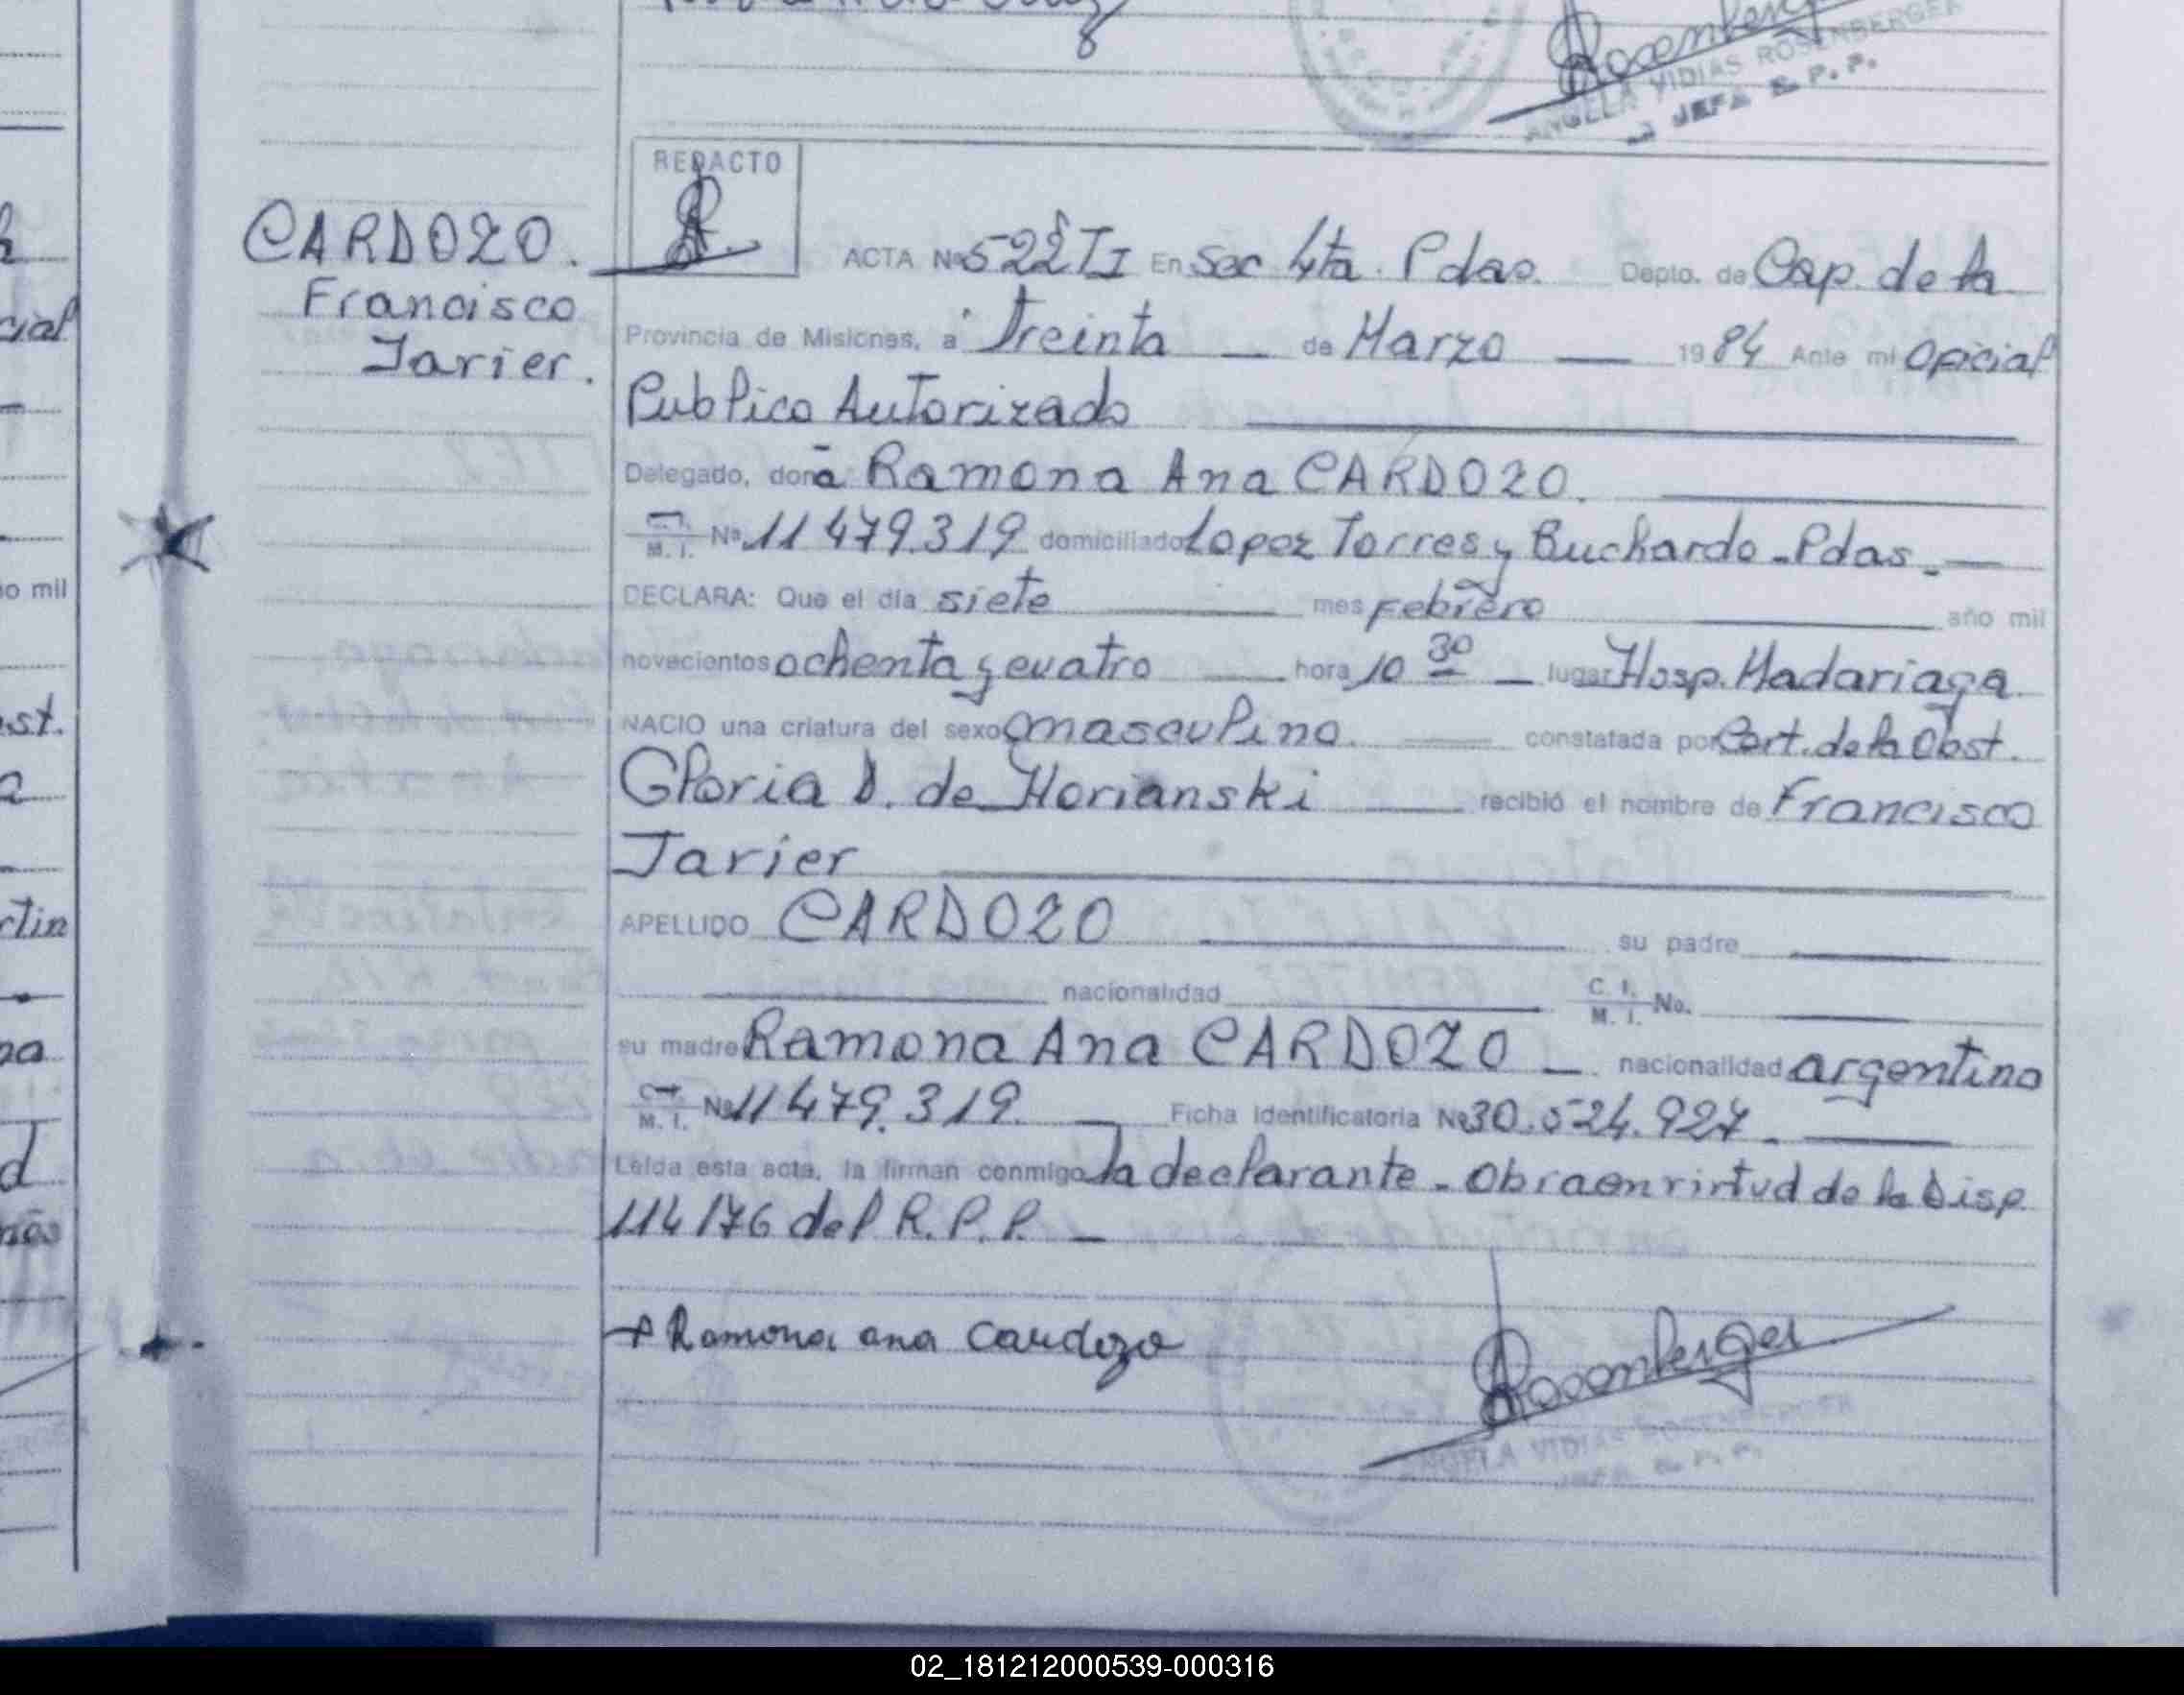 ANGELA VIDIAS ROSENBERGER
JEFA S. P. P.
REDACTO
CARDOZO.
Francisco
Javier.
ACTA Nº 522 TI En Sec 4ta. Pdas. Depto. de Cap. de la
Provincia de Misiones, a Treinta — de Marzo — 1984 Ante mi Oficial
Publico Autorizado
Delegado, doña Ramona Ana CARDOZO.
C.I. M. I. Nº 11479.319 domiciliado Lopez Torres y Buchardo - Pdas. —
DECLARA: Que el día siete — mes Febrero — año mil
novecientos ochenta y cuatro — hora 10 30 — lugar Hosp. Madariaga
NACIO una criatura del sexo masculino. — constatada por Cert. de la Obst.
Gloria D. de Horianski — recibió el nombre de Francisco
Javier
APELLIDO CARDOZO — su padre —
— nacionalidad — C. I. M. I. No. —
su madre Ramona Ana CARDOZO — nacionalidad argentina
C.I. M. I. Nº 11479.319. — Ficha Identificatoria Nº 30.524.927. —
Leída esta acta, la firman conmigo la declarante - Obra en virtud de la Disp.
114/76 del R.P.P. —
Ramona ana Cardozo
Rosenberger
ANGELA VIDIAS ROSENBERGER
JEFA S. P. P.
02_181212000539-000316